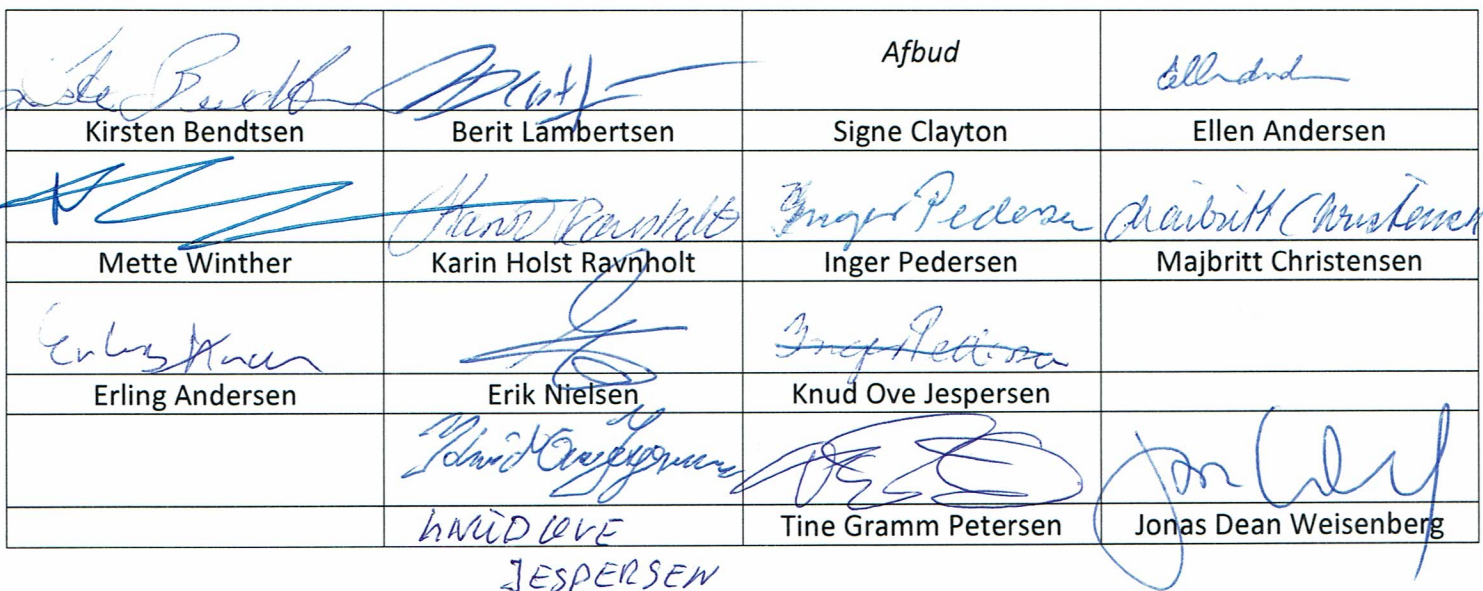 Afbud
Kirsten Bendtsen Berit Lambertsen Signe Clayton Ellen Andersen
Inger Pedersen Majbritt Christensen
Mette Winther Karin Holst Ravnholt Inger Pedersen Majbritt Christensen
Inger Pedersen
Erling Andersen Erik Nielsen Knud Ove Jespersen
Knud Ove Jespersen
KNUD OVE Tine Gramm Petersen Jonas Dean Weisenberg
JESPERSEN